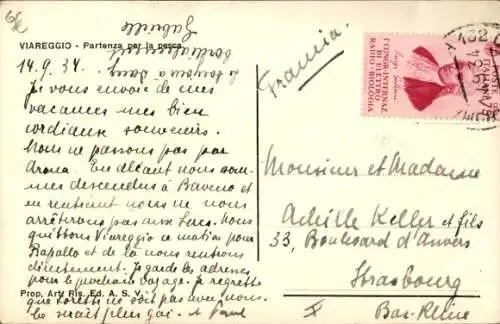 VIAREGGIO - Partenza per la pesca
14.9.34.
Je vous envoie de mes
vacances mes bien
cordiaux souvenirs.
Nous ne passons pas par
Arona. En allant nous som-
mes descendus à Baveno et
en rentrant nous ne nous
arrêterons pas aux Lacs. Nous
quittons Viareggio ce matin pour
Rapallo et de là nous rentrons
directement. Je garde les adresses
pour le prochain voyage. Je regrette
que ne soit pas avec nous.
ce serait plus gai. et
Prop. Art. Ris. Ed. A. S. V.
cordialement
Gabrielle
Francia.
I CONGR. INTERNAZ.
DI ELETTRO
RADIO-BIOLOGIA
Monsieur et Madame
Achille Keller et fils
33, Boulevard d'Anvers
Strasbourg
Bas-Rhin